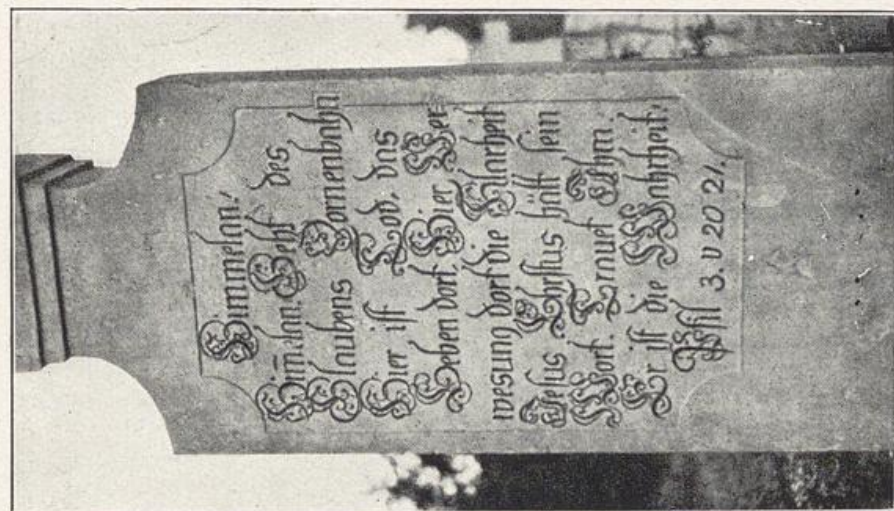 Himmelan!
Him̄elan. Geht des
Glaubens Dornenbahn
Hier ist Tod, das
Leben dort. Hier Ver=
wesung dort die Klarheit
Jesus Christus hält sein
Wort. Trauet Ihm.
Er ist die Wahrheit!
Phil 3. v 20 21.